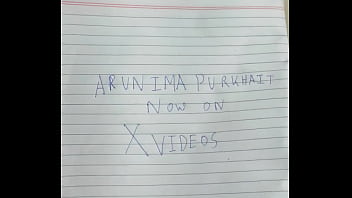 ARUNIMA PURKHAIT
NOW ON
XVIDEOS